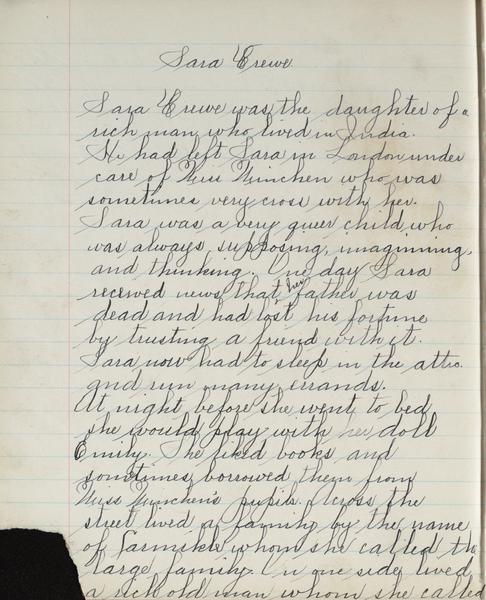 Sara Crewe
Sara Crewe was the daughter of a
rich man who lived in India.
He had left Sara in London under
care of Miss Minchen who was
sometimes very cross with her.
Sara was a very queer child who
was always supposing, imaginning,
and thinking. One day Sara
received news that her father was
dead and had lost his fortune
by trusting a friend with it.
Sara now had to sleep in the attic
and run many errands.
At night before she went to bed
she would play with her doll
Emily. She liked books and
sometimes borrowed them from
Miss Minchen's pupils. Across the
street lived a family by the name
of Carmikle whom she called the
large family. On one side lived
a rich old man whom she called